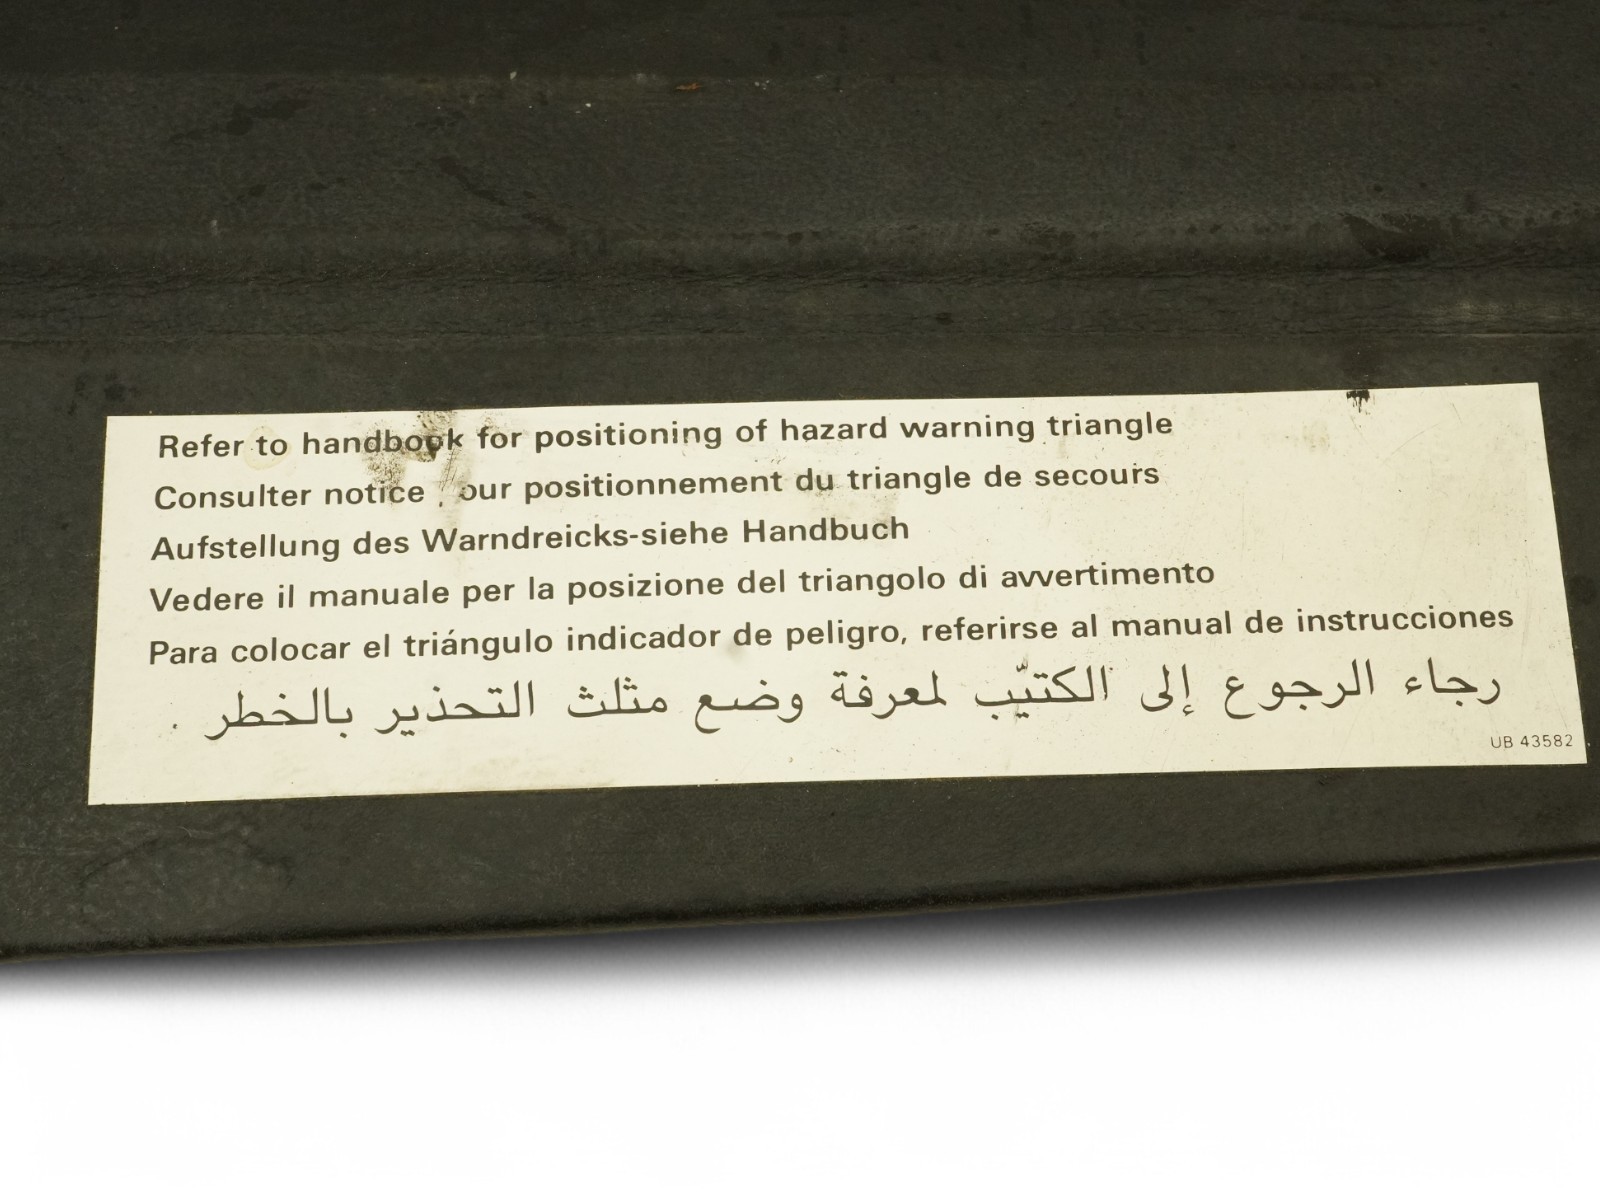 Refer to handbook for positioning of hazard warning triangle
Consulter notice our positionnement du triangle de secours
Aufstellung des Warndreicks-siehe Handbuch
Vedere il manuale per la posizione del triangolo di avvertimento
Para colocar el triángulo indicador de peligro, referirse al manual de instrucciones
رجاء الرجوع إلى الكتيّب لمعرفة وضع مثلث التحذير بالخطر .
UB 43582